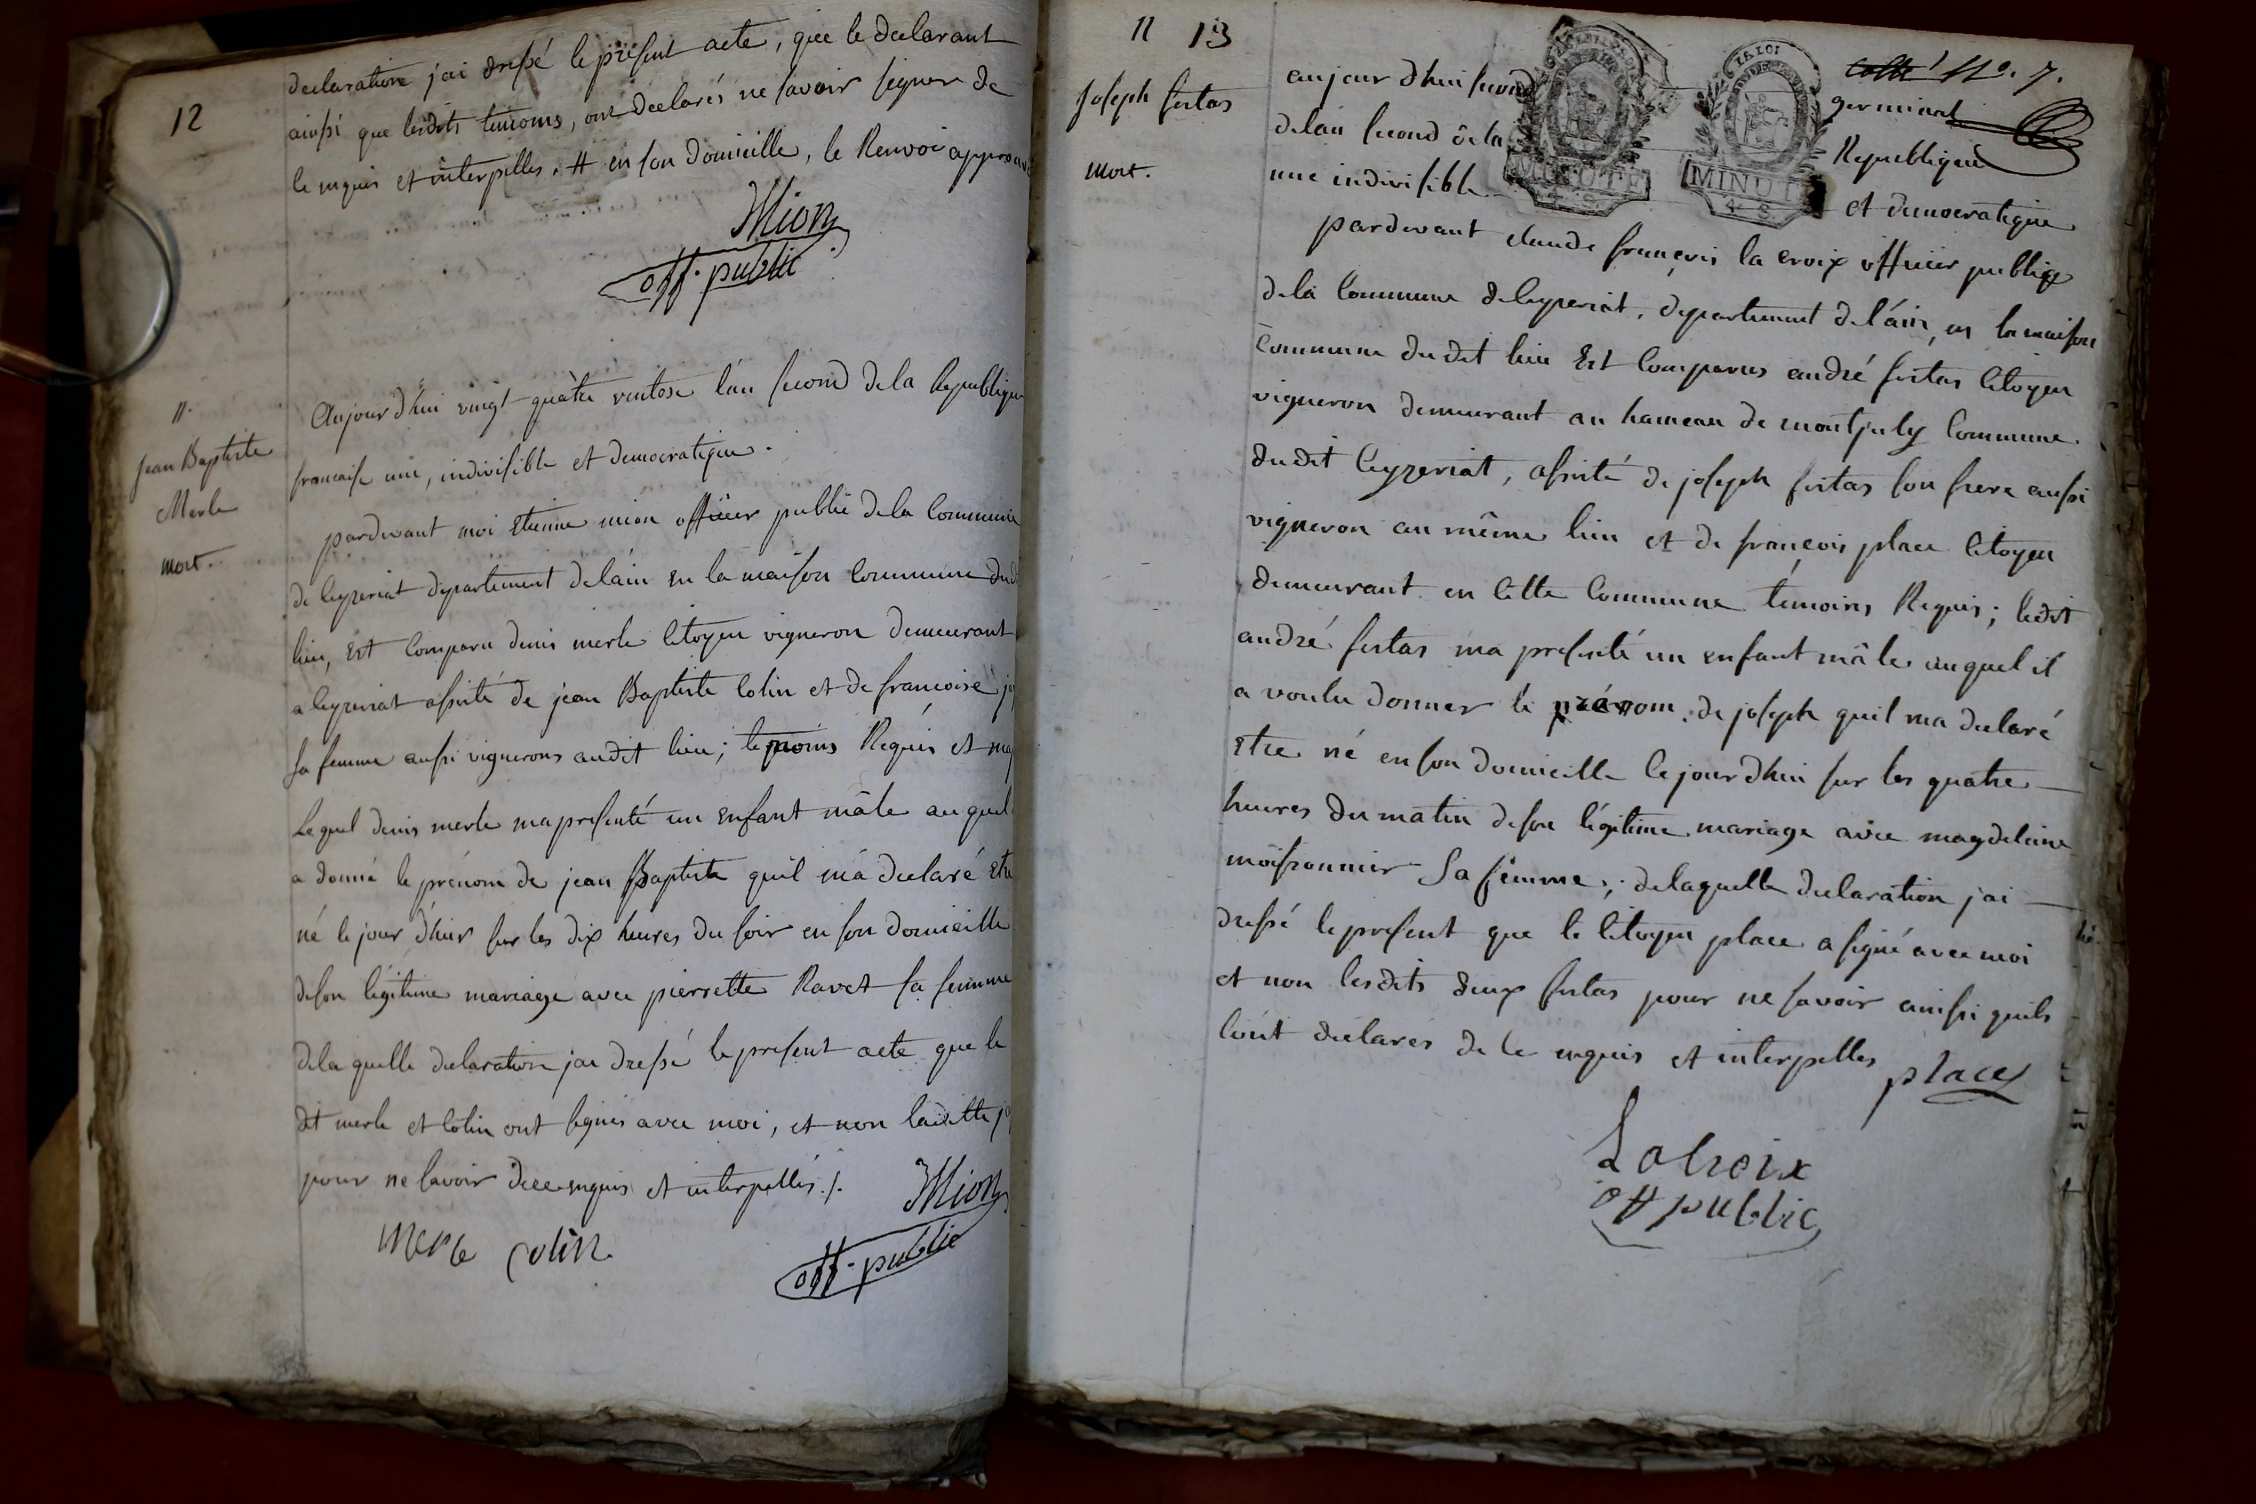 12
declaration jai dressé le présent acte, que le declarant
ainssi que lesdits temoins, ont declarés ne savoir signer de
le enquis et interpelles. # en son domicille, le Renvoi approuvé
Mion
off. public
11.
Jean Baptiste
Merle
mort.
Aujourdhui vingt quatre ventose lan second de la Republique
francaise une, indivisible et democratique.
pardevant moi Etienne mion officier public de la Commune
de Ceyzeriat département de láin en la maison Commune dud
lieu, Est Comparu denis merle Citoyen vigneron demeurant
a Ceyzeriat assisté de jean Baptiste Colin et de francoise
sa femme aussi vignerons audit lieu; temoins Requis et
Lequel denis merle ma presenté un enfant mâle auquel
a donné le prénom de jean Baptiste quil má declaré Etre
né le jour d'hier sur les dix heures du soir en son domicille
de son légitime mariage avec pierrette Ravet sa femme
de la quelle declaration jai dressé le present acte que le
dit merle et Colin ont signés avec moi, et non laditte
pour ne savoir de ce enquis et interpellés ./.
Mion
off. public
merle Colin
11 13
Joseph fertas
mort.
No. 7.
aujourdhui second germinal
delan second de la Republique
une indivisible et democratique
LA LOI
MINUTE
MINUT
4 S
pardevant claude françois la croix officier public
de la Commune de Ceyzeriat, departement de l'ain, en la maison
Commune du dit lieu Est Comparus andré fertas Citoyen
vigneron demeurant au hameau de montjuly Commune
dudit Ceyzeriat, assisté de joseph fertas son frere aussi
vigneron au même lieu et de françois place Citoyen
demeurant en Cette Commune témoins Requis; ledit
andré fertas ma presenté un enfant mâle auquel il
a voulu donner le prénom de joseph quil ma declaré
Etre né en son domicille Cejourdhui sur les quatre
heures du matin de son légitime mariage avec magdelaine
moissonnier Sa femme; de laquelle declaration jai
dressé le present que le Citoyen place a signé avec moi
et non lesdits deux fertas pour ne savoir ainssi quils
lont declarés de ce enquis et interpelles
place
Lacroix
off public